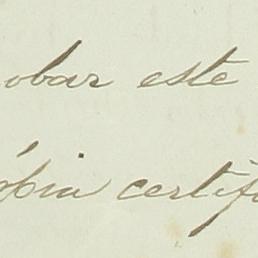 obar este
ópia certifi